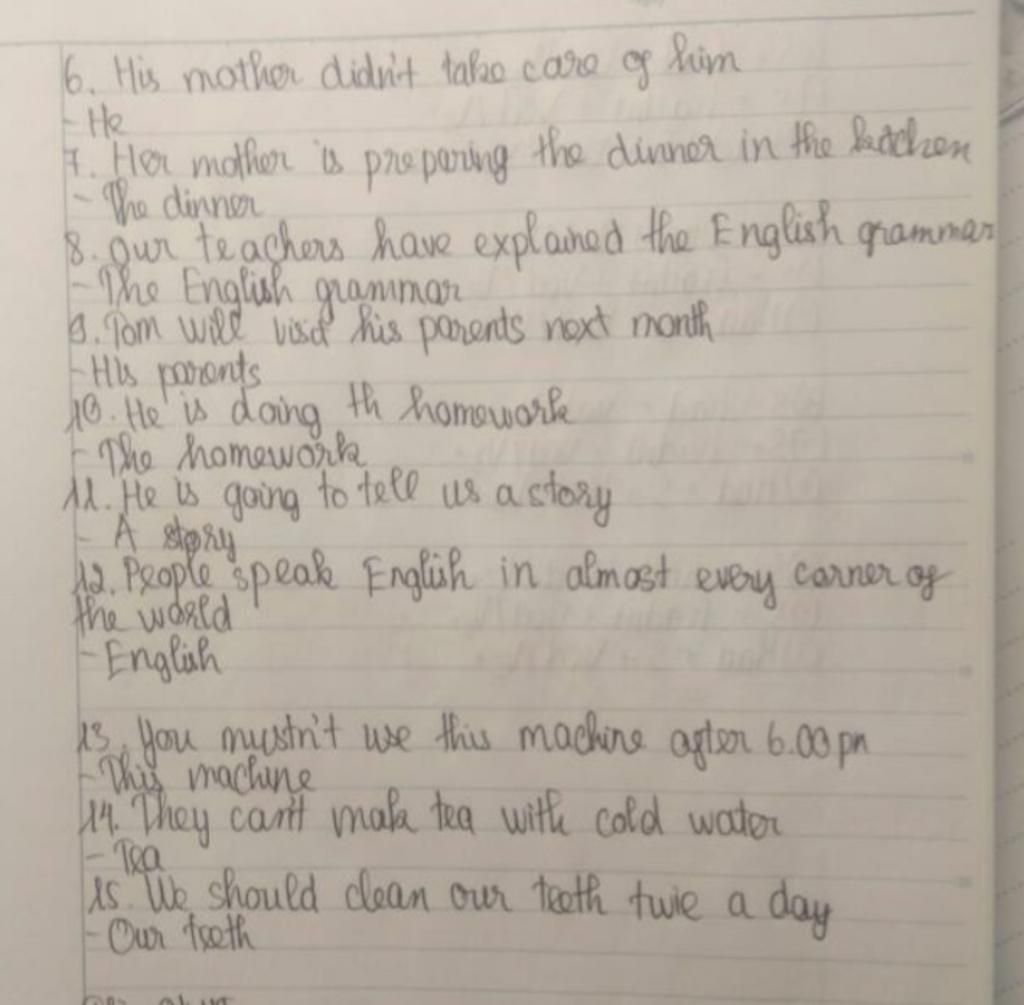 6. His mother didn't take care of him
- He
7. Her mother is preparing the dinner in the kitchen
- The dinner
8. Our teachers have explained the English grammar
- The English grammar
9. Tom will visit his parents next month
- His parents
10. He is doing th homework
- The homework
11. He is going to tell us a story
- A story
12. People speak English in almost every corner of
the world
- English
13. You mustn't use this machine after 6.00 pm
- This machine
14. They can't make tea with cold water
- Tea
15. We should clean our teeth twie a day
- Our teeth